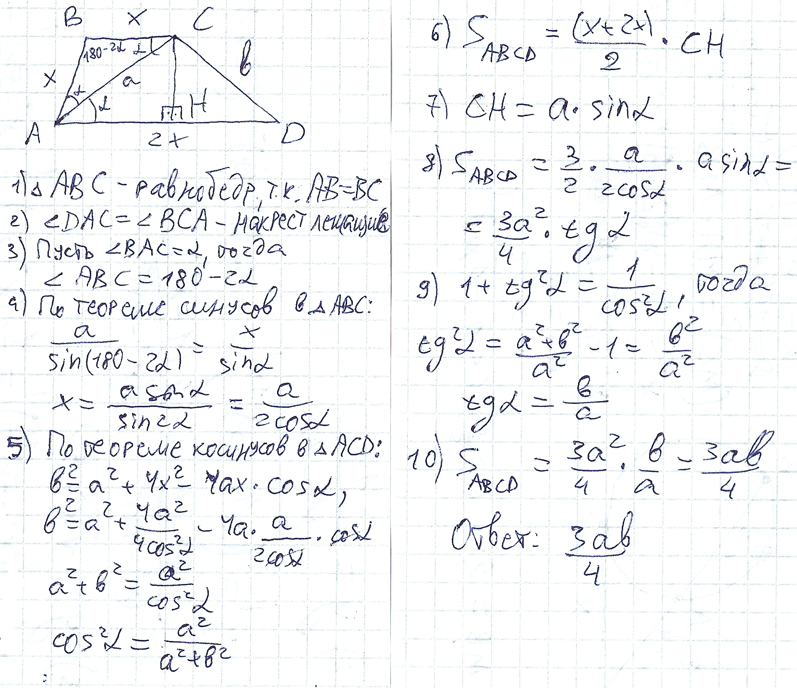 B x C
180-2α α
x a b
α α H
A 2x D
1) Δ ABC - равнобедр, т.к. AB=BC
2) ∠DAC = ∠BCA - накрест лежащие
3) Пусть ∠BAC=α, тогда
∠ ABC = 180-2α
4) По теореме синусов в ΔABC:
a/sin(180-2α) = x/sinα
x = a sinα/sin2α = a/2cosα
5) По теореме косинусов в ΔACD:
b² = a² + 4x² - 4ax · cosα,
b² = a² + 4a²/4cos²α - 4a · a/2cosα · cosα
a² + b² = a²/cos²α
cos²α = a²/a²+b²
:
6) S ABCD = (x+2x)/2 · CH
7) CH = a · sinα
8) S ABCD = 3/2 · a/2cosα · a sinα =
= 3a²/4 · tg α
9) 1 + tg²α = 1/cos²α, тогда
tg²α = a²+b²/a² - 1 = b²/a²
tgα = b/a
10) S ABCD = 3a²/4 · b/a = 3ab/4
Ответ: 3ab/4